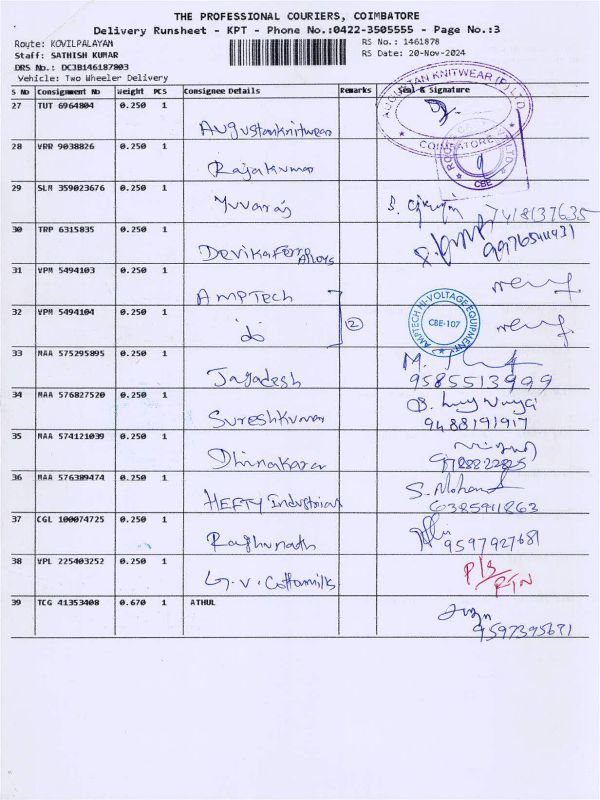 THE PROFESSIONAL COURIERS, COIMBATORE
Delivery Runsheet - KPT - Phone No.:0422-3505555 - Page No.:3
Route: KOVILPALAYAM
RS No.: 1461878
Staff: SATHISH KUMAR
RS Date: 20-Nov-2024
DRS No.: DCJB146187803
Vehicle: Two Wheeler Delivery
S No Consignment No Weight PCS Consignee Details Remarks Seal & Signature
27 TUT 6964804 0.250 1
Augustanknitwear
AUGUSTAN KNITWEAR (P) LTD
COIMBATORE
28 VRR 9038826 0.250 1
Rajakumar
CBE
29 SLM 359023676 0.250 1
Yuvaraj 7418137635
30 TRP 6315835 0.250 1
Devika Ferro Alloys
31 VPM 5494103 0.250 1
AMPTech
32 VPM 5494104 0.250 1
do 2
AMPTECH HI-VOLTAGE EQUIPMENT
CBE-107
33 MAA 575295895 0.250 1
Jagadesh 9585513999
34 MAA 576827520 0.250 1
Sureshkumar 9488191917
35 MAA 574121039 0.250 1
Dhinakaran
36 MAA 576389474 0.250 1
HEFTY Industries S. Mohan
6385911863
37 CGL 100074725 0.250 1
Raghunath 9597927681
38 VPL 225403252 0.250 1
G.V. Cottomills
39 TCG 41353408 0.670 1 ATHUL
9597395671